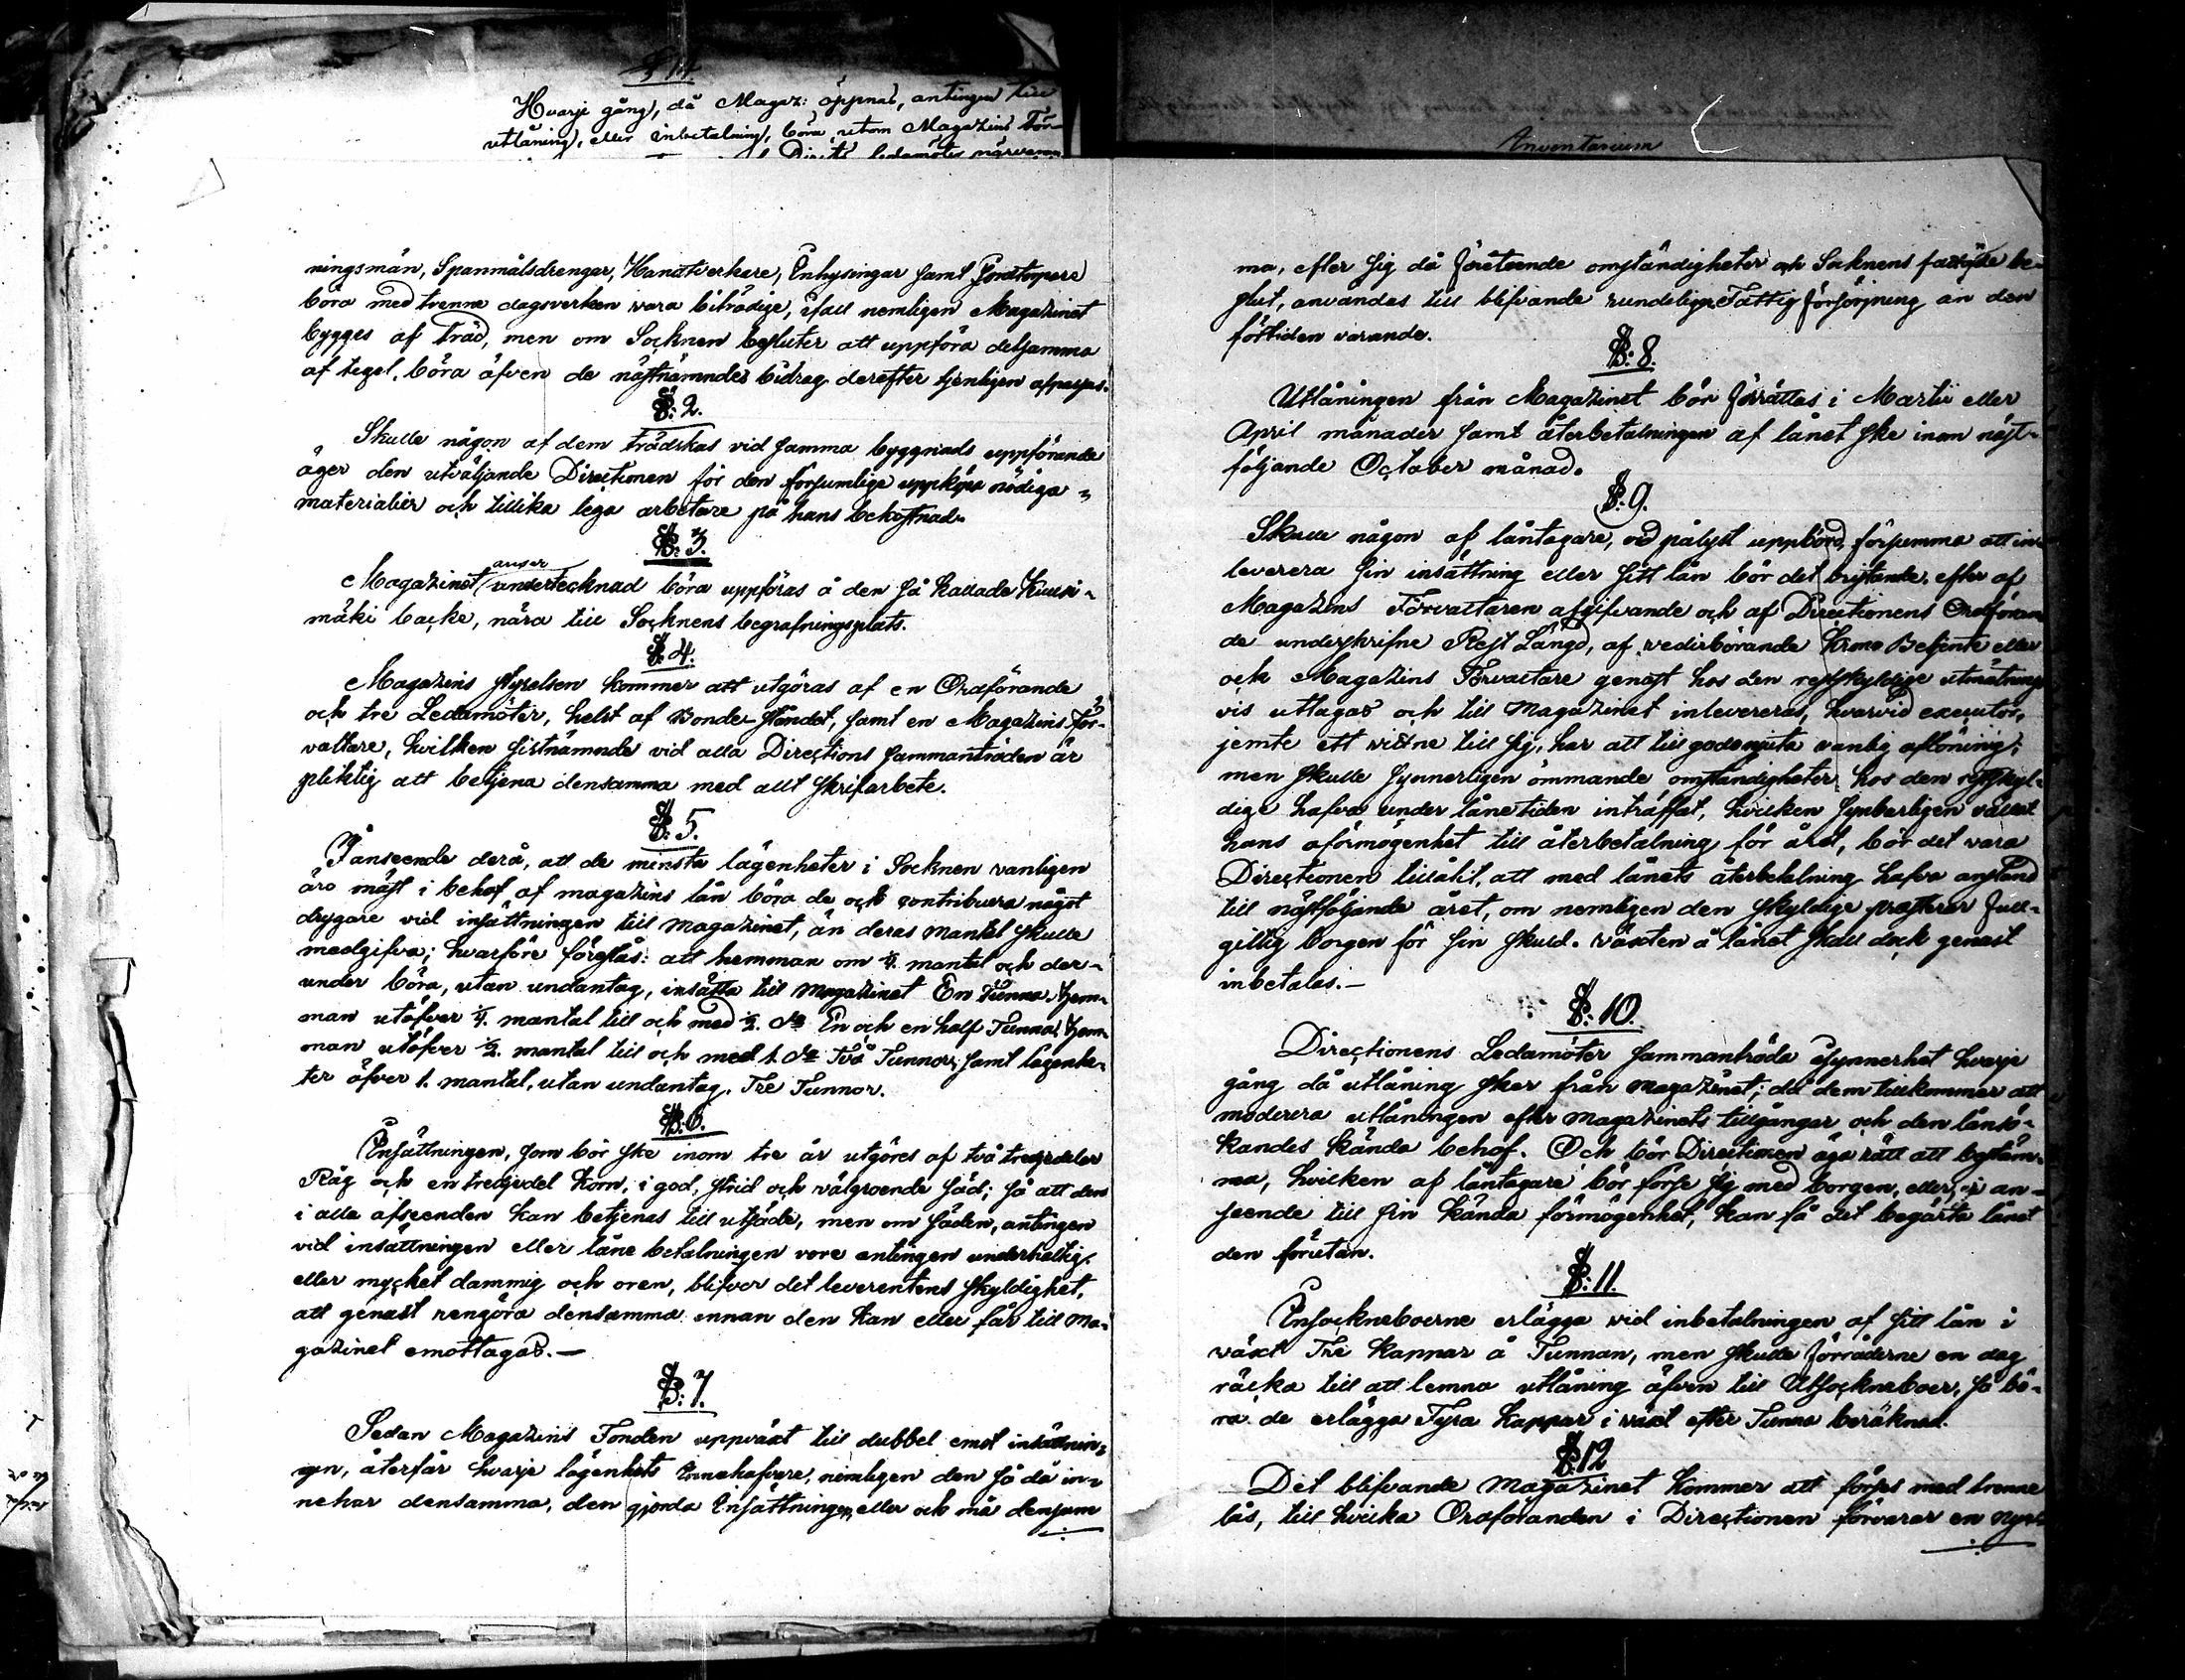 § 14.
Hvarje gång, då Magaz: öppnas, antingen till
utlåning, eller inbetalning, böra utom Magazins För-
Direkt: ledamöter närvara
ningsmän, Spanmålsdrengar, Handtverkare, Enhysingar samt
böra med trenne dagsverken vara biträdige, ifall nemligen Magazinet
bygges af träd, men om Socknen besluter att uppföra detsamma
af tegel, böra äfven de nästnämndes bidrag derefter tjenligen afpassas.
§: 2.
Skulle någon af dem trädskas vid samma byggnads uppförande
äger den utväljande Directionen för den försumlige uppköpa nödiga
materialier och tillika lega arbetare på hans bekostnad.
§: 3.
Magazinet anser undertecknad böra uppföras å den så kallade Kuusi-
mäki backe, nära till Socknens begrafningsplats.
§: 4.
Magazins styrelsen kommer att utgöras af en Ordförande
och tre Ledamöter, helst af Bonde-ståndet, samt en Magazins för-
valtare, hvilken sistnämnde vid alla Directions sammanträden är
pliktig att betjena densamma med allt skrifarbete.
§: 5.
I anseende derå, att de minsta lägenheter i Socknen vanligen
äro mäst i behof af magazins lån böra de och contribuera något
drygare vid insättningen till magazinet, än deras mantal skulle
medgifva; hvarföre föreslås: att hemman om 1/4. mantal och der-
under böra, utan undantag, insätta till magazinet En Tunna, hem-
man utöfver 1/4. mantal till och med 1/2. do En och en half Tunna, hem-
man utöfver 1/2. mantal till och med 1. do Två Tunnor, samt lägenhe-
ter öfver 1. mantal, utan undantag, Tre Tunnor.
§: 6.
Insättningen, som bör ske inom tre år utgöres af två tredjedelar
Råg och en tredjedel Korn, i god, strid och välgroende säd; så att den
i alla afseenden kan betjenas till utsäde, men om säden, antingen
vid insättningen eller låne betalningen vore antingen underhaltig
eller mycket dammig och oren, blifver det leverentens skyldighet,
att genast rengöra densamma innan den kan eller får till Ma-
gazinet emottagas.—
§: 7.
Sedan Magazins Fonden uppväxt till dubbel emot insättnin-
gen, återfår hvarje lägenhets Innehafvare, nemligen den så då in-
nehar densamma, den gjorda Insättningen, eller och må densam
Inventarium
ma, efter sig då företeende omständigheter och Socknens be-
slut, användas till blifvande rundeligre Fattig försörjning än den
förtiden varande.
§: 8.
Utlåningen från Magazinet bör förrättas i Martii eller
April månader samt återbetalningen af lånet ske inom näst-
följande October månad.
§: 9.
Skulle någon af låntagare, vid pålyst uppbörd, försumma att in-
leverera sin insättning eller sitt lån bör det bristande, efter af
Magazins Förvaltaren afgifvande och af Directionens Ordföran
de underskrifne Rest Längd, af vederbörande Krono Betjente eller
och Magazins Förvaltare genast hos den restskyldige utmätnings
vis uttagas och till magazinet inlevereras, hvarvid executor,
jemte ett vittne till sig, har att tillgodonjuta vanlig aflöning;
men skulle synnerligen ömmande omständigheter hos den restskyl-
dige hafva under lånetiden inträffat, hvilken synbarligen vållat
hans oförmögenhet till återbetalning för året, bör det vara
Directionen tillåtit, att med lånets återbetalning hafva anstånd
till nästföljande året, om nemligen den skyldige præsterar full-
giltig borgen för sin skuld. Växten å lånet skall dock genast
inbetalas.—
§: 10.
Directionens Ledamöter sammanträda isynnerhet hvarje
gång då utlåning sker från magazinet; det dem tillkommer att
moderera utlåningen efter magazinets tillgångar och den lånsö-
kandes kända behof. Och bör Directionen äga rätt att bestäm-
ma, hvilken af låntagare bör förse sig med borgen, eller, i an-
seende till sin kända förmögenhet, kan få det begärta lånet
den förutan.
§: 11.
Insockneboerne erlägga vid inbetalningen af sitt lån i
växt Tre Kappar å Tunnan, men skulle förråderne en dag
räcka till att lemna utlåning äfven till Utsockneboer, så bö-
ra de erlägga Fyra Kappar i växt efter Tunna beräknad.
§: 12
Det blifvande magazinet kommer att förses med trenne
lås, till hvilka Ordföranden i Directionen förvarar en nyc-